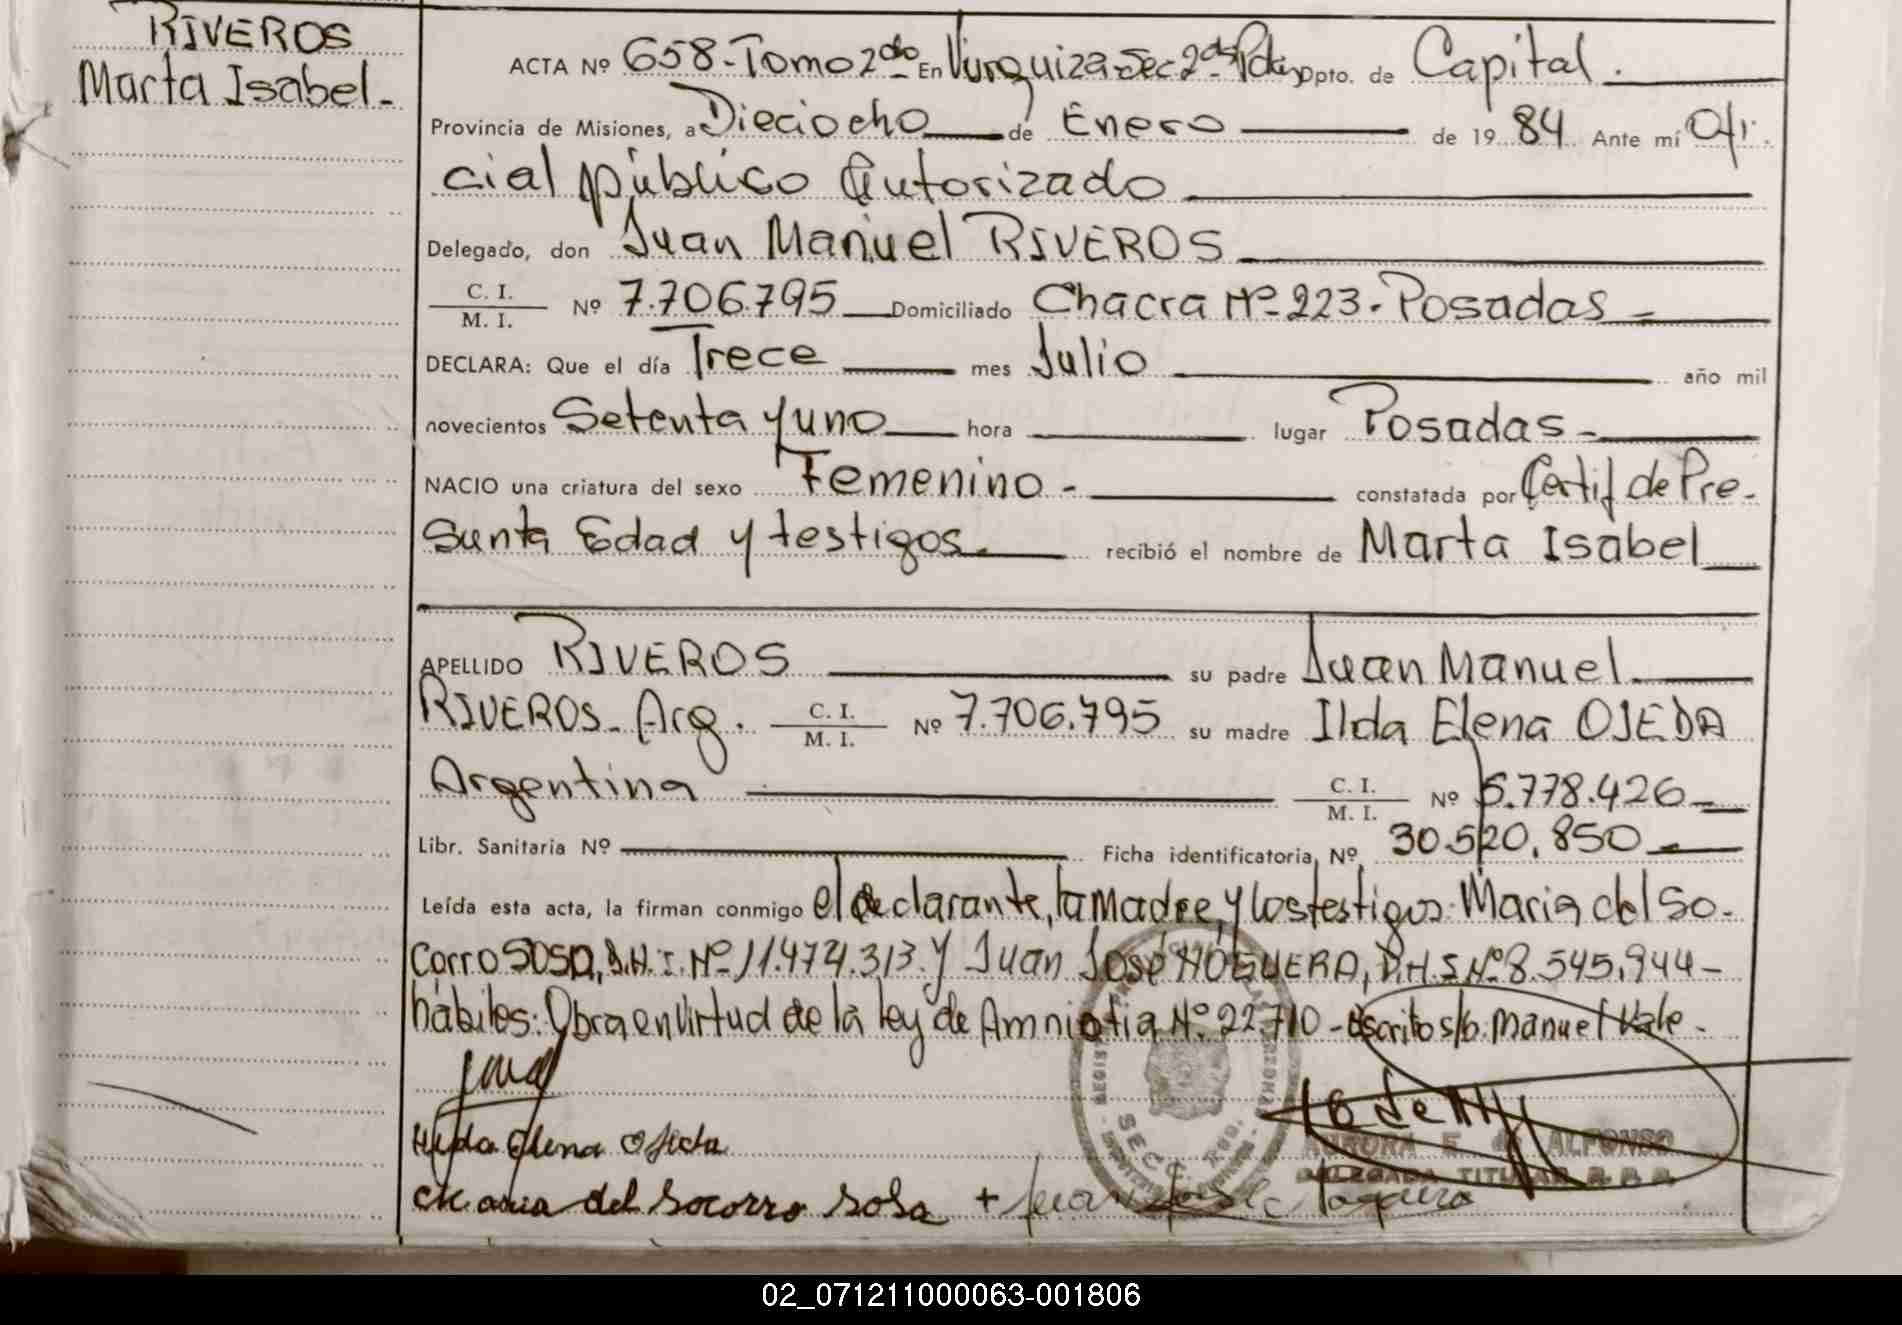 RIVEROS
Marta Isabel-
ACTA Nº 658-Tomo 2do En Vurquiza-Sec-2da Pdas Dpto. de Capital.
Provincia de Misiones, a Dieciocho de Enero de 1984 Ante mí Ofi-
cial público Autorizado
Delegado, don Juan Manuel RIVEROS
C. I. / M. I. Nº 7.706.795 Domiciliado Chacra Nº 223-Posadas-
DECLARA: Que el día Trece mes Julio año mil
novecientos Setenta y uno hora lugar Posadas-
NACIO una criatura del sexo Femenino- constatada por Certif de Pre-
sunta Edad y testigos. recibió el nombre de Marta Isabel
APELLIDO RIVEROS su padre Juan Manuel
RIVEROS-Arg. C. I. / M. I. Nº 7.706.795 su madre Ilda Elena OJEDA
Argentina C. I. / M. I. Nº 5.778.426-
Libr. Sanitaria Nº Ficha identificatoria, Nº 30.520.850
Leída esta acta, la firman conmigo el declarante, la Madre, y los testigos: Maria del So-
corro SOSA, D.N.I. Nº 11.474.313 y Juan José NOGUERA, D.N.I Nº 8.545.944-
hábiles: Obra en virtud de la ley de Amnistia Nº 22.710-Escrito s/b. Manuel Vale.
Hilda Elena Ojeda
Maria del Socorro Sosa + Juan Jose Noguera
AURORA E. de ALFONSO
DELEGADA TITULAR R. P. P.
02_071211000063-001806